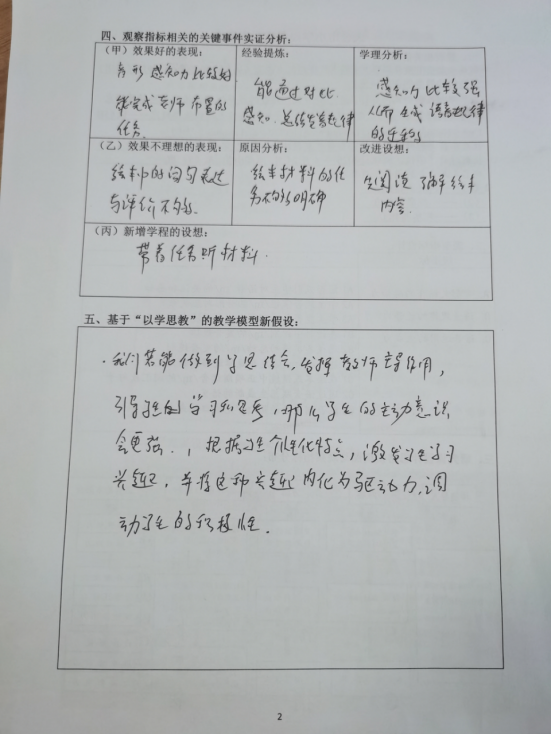 四、观察指标相关的关键事件实证分析：
（甲）效果好的表现：
音形感知力比较好
能完成老师布置的
任务
经验提炼：
能通过对比
感知、总结发音规律
学理分析：
感知力比较强
从而生成语音规律
的迁移
（乙）效果不理想的表现：
绘本中的问句表达
与评价不够.
原因分析：
绘本材料的任
务不够明确
改进设想：
先阅读 了解绘本
内容.
（丙）新增学程的设想：
带着任务听材料.
五、基于“以学思教”的教学模型新假设：
我们若能做到学思结合,发挥教师主导作用,
引导学生的学习和思考,那么学生的主动意识
会更强.,根据学生个性化特点,激发学生学习
兴趣,并将这种兴趣内化为驱动力,调
动学生的积极性.
2